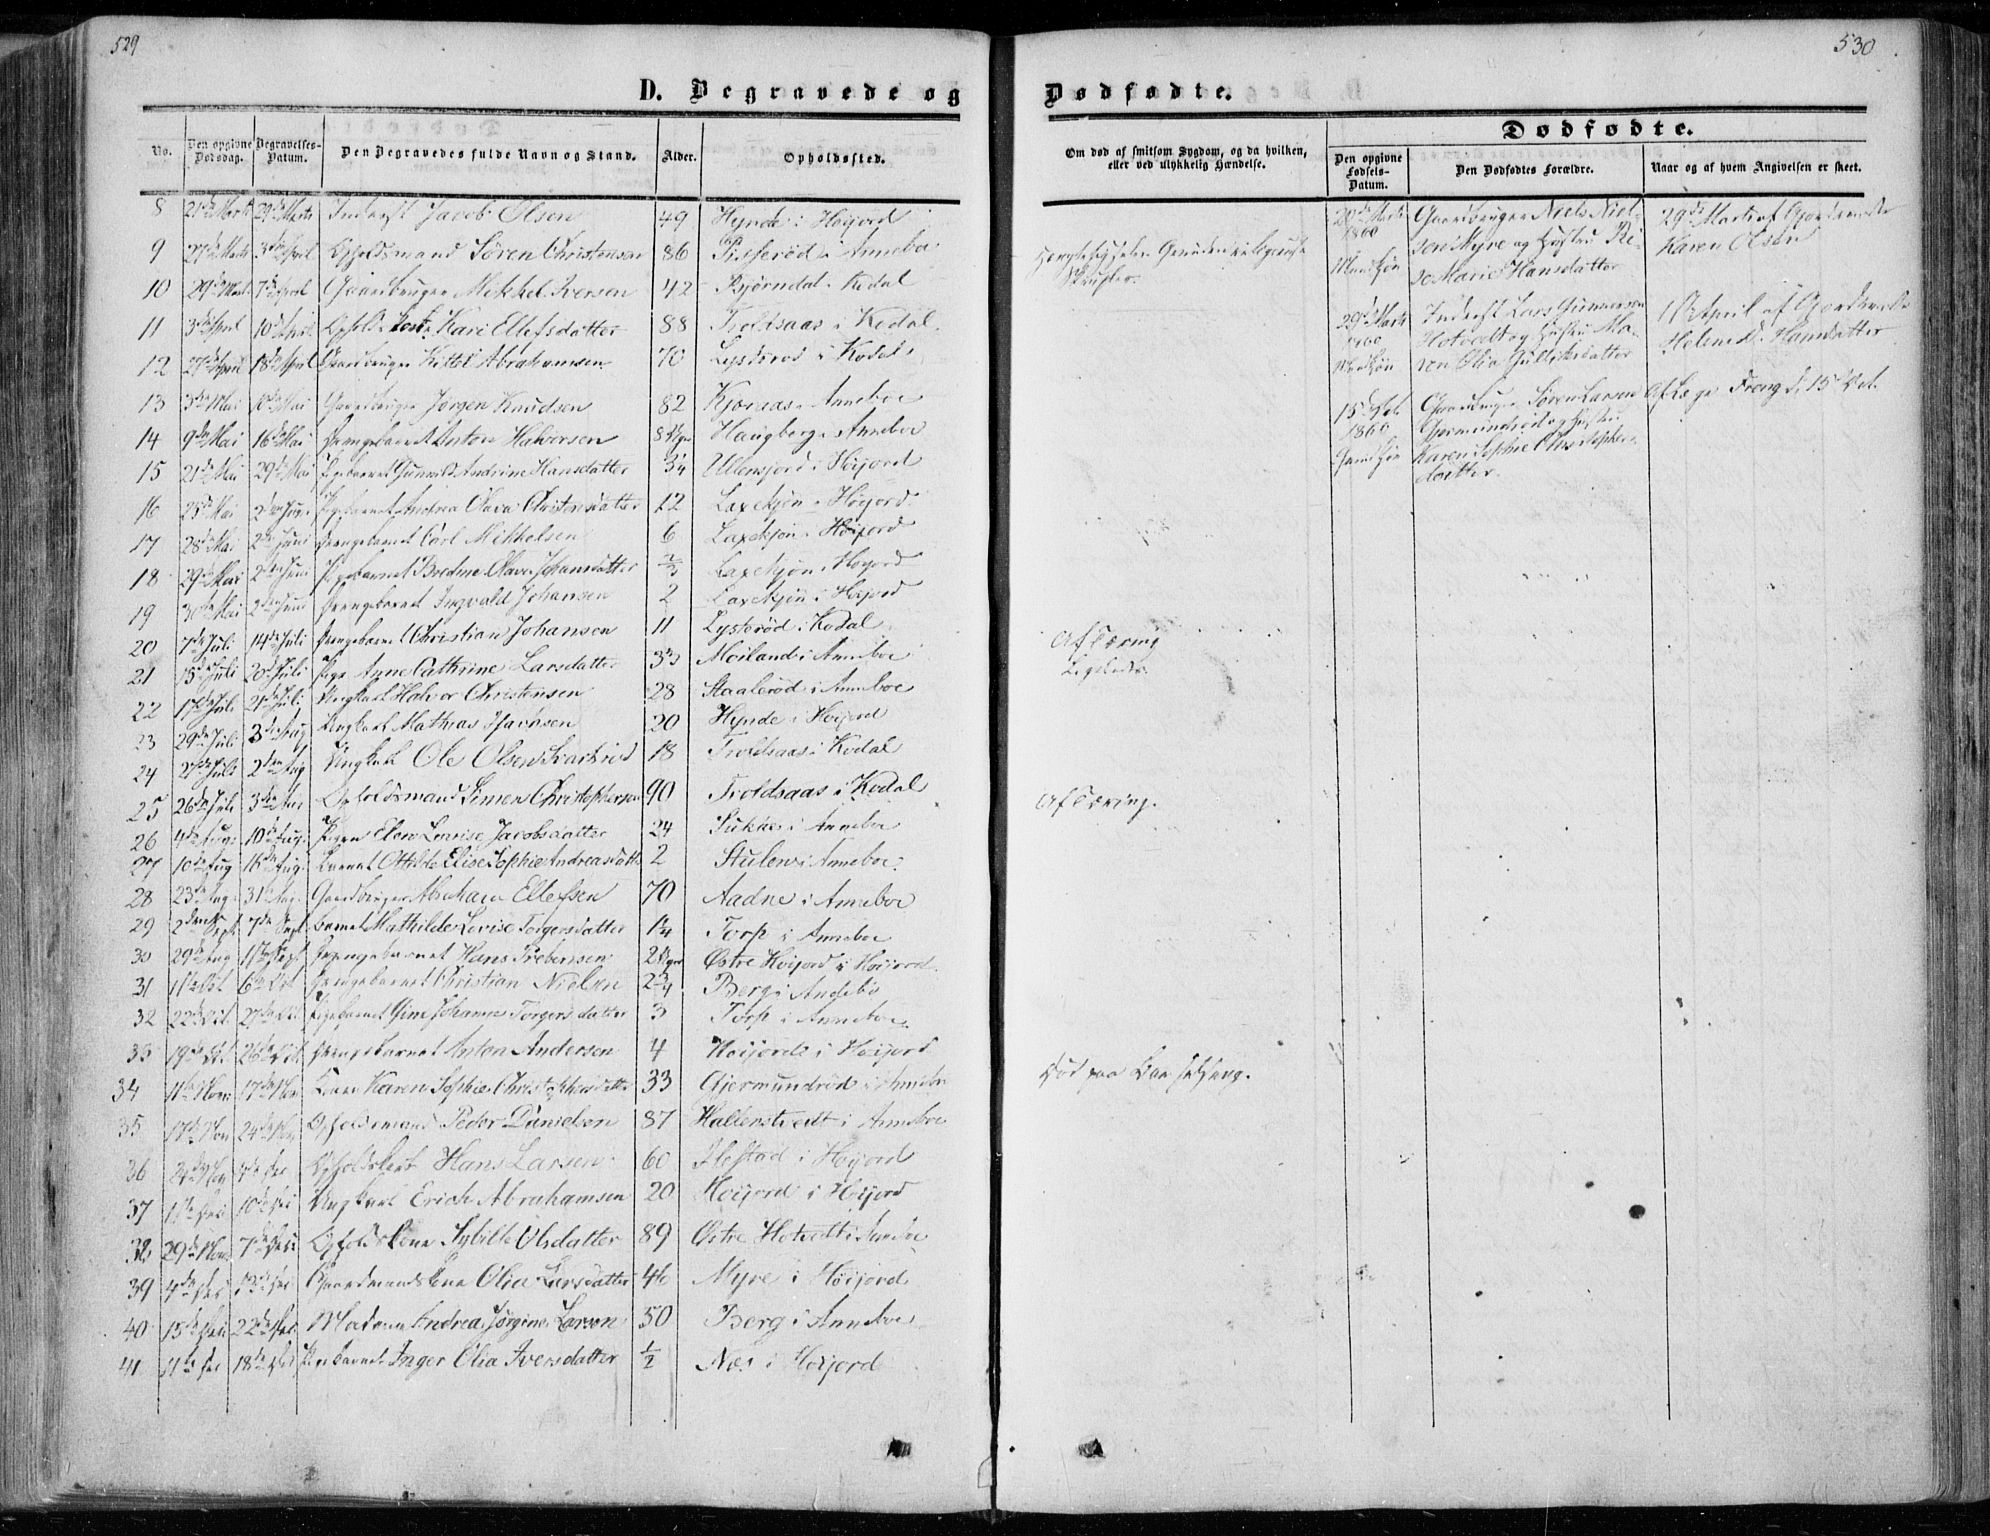 529
D. Begravede og
No. Den opgivne Dødsdag. Begravelses-Datum. Den Begravedes fulde Navn og Stand. Alder. Opholdssted.
8 21de Marts 29de Marts Inderst Jacob Olsen 49 Hynde i Høijord
9 27de Marts 3de April Opholdsmand Søren Christensen 86 i Anneboe
10 29de Marts 7de April Gaardbruger Mikkel Iversen 42 Bjørndal i Kodal
11 3de April 10de April Kari Ellefsdatter 88 Troldsaas i Kodal
12 27de April 18de April Gaardbruger Kittel Abrahamsen 70 Lysterød i Kodal
13 3de Mai 10de Mai Gaardbruger Jørgen Knudsen 82 Kjøraas i Anneboe
14 9de Mai 16de Mai Drengebarnet Anton Halvorsen 8 Haugberg i Anneboe
15 21de Mai 29de Mai Pigebarnet Gunnild Andrine Hansdatter 3/4 i Høijord
16 25de Mai 2den Juni Pigebarnet Andrea Olava Christensdatter 12 Laxekjøn i Høijord
17 28de Mai 2den Juni Drengebarnet Carl Mikkelsen 6 Laxekjøn i Høijord
18 29de Mai 2den Juni Pigebarnet Olava Johansdatter 2/3 Laxekjøn i Høijord
19 30de Mai 2den Juni Drengebarnet Ingvald Johansen 2 Laxekjøn i Høijord
20 7de Juli 14de Juli Drengebarnet Christian Johansen 11 Lysterød i Kodal
21 15de Juli 20de Juli Pige Anne Cathrine Larsdatter 33 Møiland i Anneboe
22 17de Juli 21de Juli Ungkarl Halvor Christensen 28 Staalerød i Anneboe
23 29de Juli 3de Aug Ungkarl Mathias 20 Hynde i Høijord
24 27de Juli 2den Aug Ungkarl Ole Olsen 18 Troldsaas i Kodal
25 26de Juli 3de Aug Opholdsmand Simen Christophersen 90 Troldsaas i Kodal
26 4de Aug: 10de Aug: Pigen Elen Lovise Jacobsdatter 24 i Anneboe
27 10de Aug 16de Aug: Barnet Othilde Elise Sophie Andreasdatter 2 Stulen i Anneboe
28 23de Aug: 31te Aug: Gaardbruger Abraham Ellefsen 70 Aadne i Anneboe
29 2den Sept 7de Sept barnet Mathilde Lovise Torgersdatter 1 1/4 Torp i Anneboe
30 29de Aug 11te Sept Drengebarnet Hans Prebensen 2 Østre Høijord i Høijord
31 1te Oct 6te Oct Drengebarnet Christian Nielsen 2 3/4 Berg i Andebo
32 22de Oct. 27de Oct. Pigebarnet Gine Johanne Torgersdatter 3 Torp i Anneboe
33 19de Oct. 26de Oct. Drengebarnet Anton Andersen 4 Høijord i Høijord
34 11te Nov 17de Nov Kone Karen Sophie Christophersdatter 33 Gjermundrød i Anneboe
35 17de Nov 24de Nov Opholdsmand Peder Danielsen 87 Hallenstvedt i Anneboe
36 Hans Larsen 60 Ilestad i Høijord
37 10de Dec Ungkarl Erich Abrahamsen 20 Høijord i Høijord
38 29de Nov 7de Dec Opholdskone Sybille Olsdatter 89 Østre Hotvedt i Anneboe
39 4de Dec 13de Dec Gaardmandskone Olia Larsdatter 46 Myre i Høijord
40 15de Dec 22de Dec Madame Andrea Jørgine Larsen 50 Berg i Anneboe
41 11te Dec 18de Dec Pigebarnet Inger Olia Iversdatter 1/2 Næs i Høijord
530
Dødfødte.
Om død af smitsom Sygdom, og da hvilken, eller ved ulykkelig Hændelse.
Dødfødte.
Den opgivne Fødsels-Datum. Den Dødfødtes Forældre. Naar og af hvem Angivelsen er skeet.
Af Tæring
Ligeledes.
Af Tæring.
Død paa Barselseng.
20de Marts 1860 Gaardbruger Niels Niel-
sen Myre og Hustru
Marie Hansdatter
29de Marts af Gjordemoder
Karen Olsen
29de Marts 1860 Inderst Lars Gunnersen
Hotvedt og Hustru Ma-
ren Olia Gulliksdatter
April af Gjordemoder
Helene D. Hansdatter
15de Oct. 1860 Gaardbruger Søren Larsen
Gjermundrød og Hustru
Karen Sophie Christophers-
datter
Af Læge Prong d. 15 Oct.